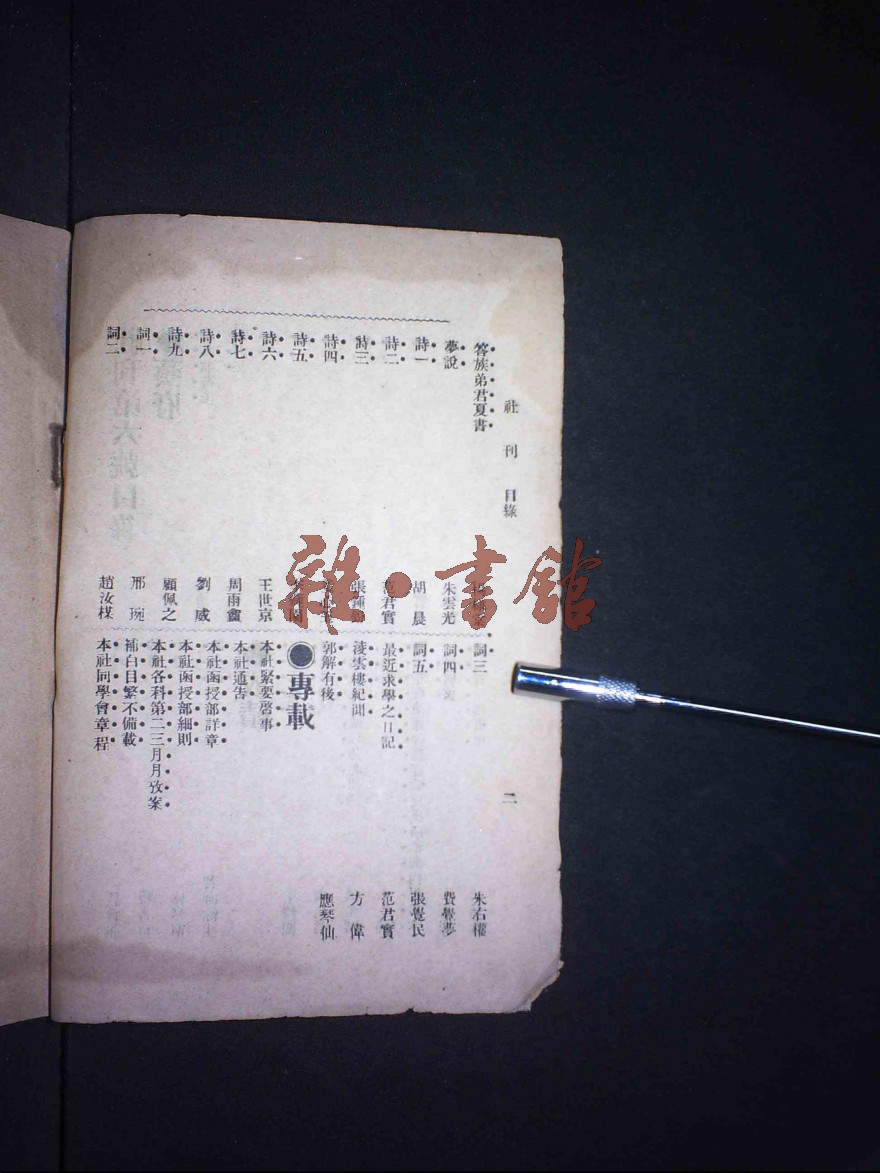 社刊 目錄
二
答族弟君夏書
夢說 朱雲光
詩一 胡晨
詩二 范君實
詩三
詩四
詩五
詩六 王世京
詩七 周雨
詩八 劉威
詩九 顧佩之
詞一 邢琬
詞二 趙汝楳
詞三 朱右權
詞四 費覺夢
詞五 張覺民
最近求學之日記 范君實
淩雲樓紀聞 方偉
郭解有後 應琴仙
●專載
本社緊要啓事
本社通告
本社函授部詳章
本社函授部細則
本社各科第二三月月攷案
補白目繁不備載
本社同學會章程
雜·書館